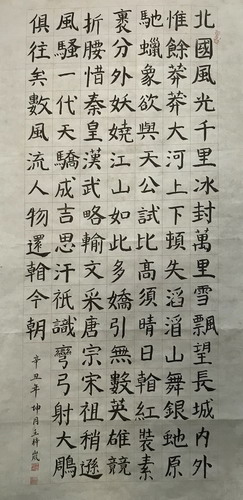 北國風光千里冰封萬里雪飄望長城內外
惟餘莽莽大河上下頓失滔滔山舞銀虵原
馳蠟象欲與天公試比高須晴日翰紅裝素
裹分外妖嬈江山如此多嬌引無數英雄競
折腰惜秦皇漢武略輸文采唐宗宋祖稍遜
風騷一代天驕成吉思汗祇識彎弓射大鵰
俱往矣數風流人物還翰今朝
辛丑年坤月